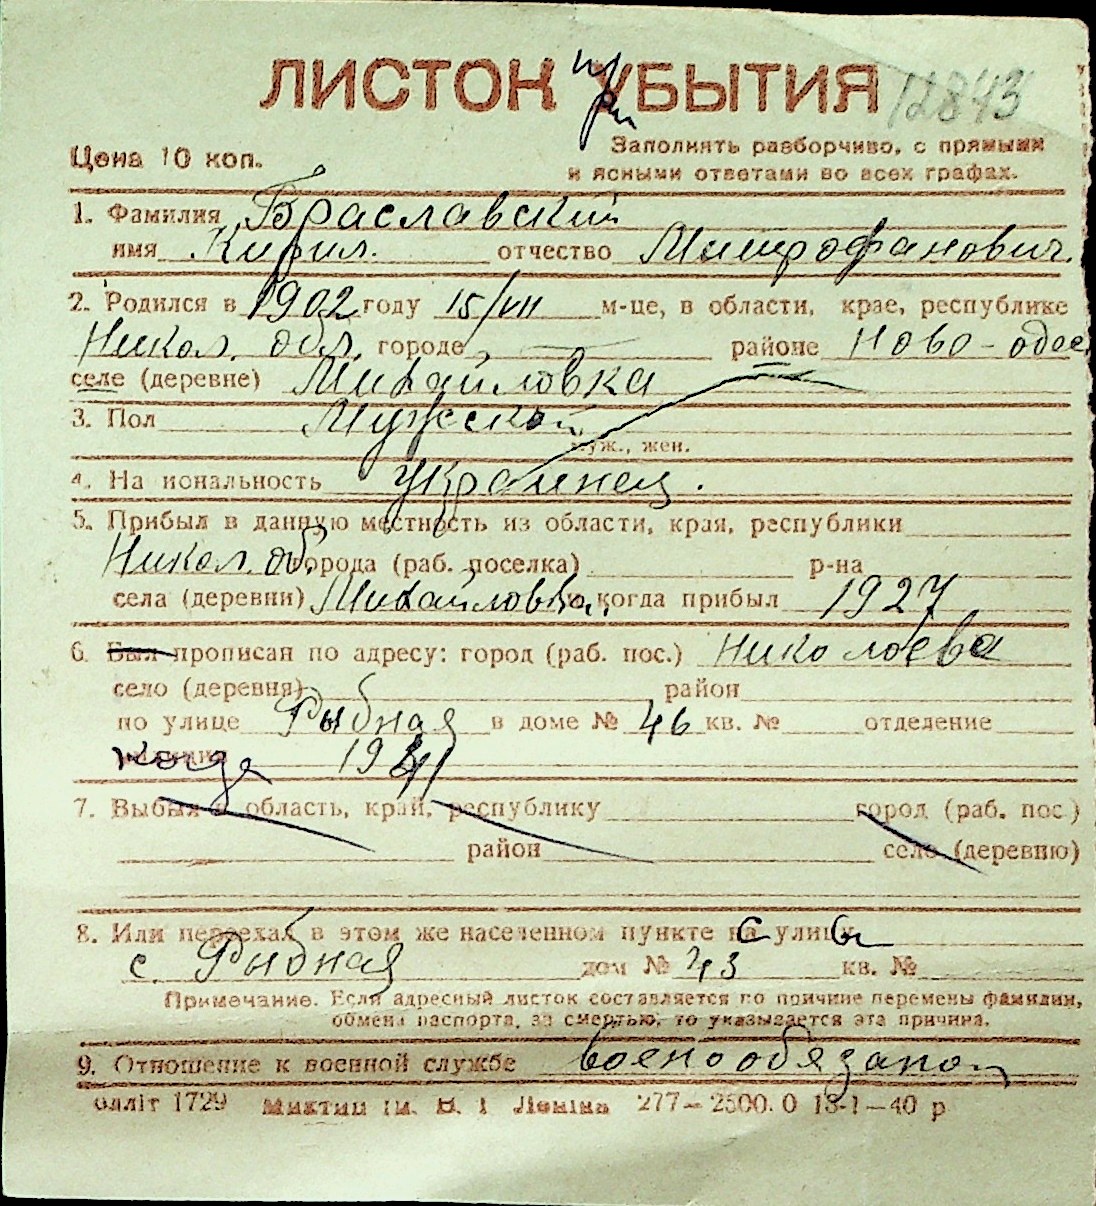 ЛИСТОК УБЫТИЯ при 12843
Цена 10 коп. Заполнять разборчиво, с прямыми
и ясными ответами во всех графах.
1. Фамилия Браславский
имя Кирил. отчество Митрофанович.
2. Родился в 1902 году 15/VII м-це, в области, крае, республике
Никол. обл. городе районе Ново-одес
селе (деревне) Михайловка
3. Пол Мужской
муж., жен.
4. На иональность украинец.
5. Прибыл в данную местность из области, края, республики
Никол. об. города (раб. поселка) р-на
села (деревни) Михайловка, и когда прибыл 1927
6. Был прописан по адресу: город (раб. пос.) Николаева
село (деревня) район
по улице Рыбная в доме № 46 кв. № отделение
когда 1941
7. Выбыл в область, край, республику город (раб. пос.)
район село (деревню)
8. Или переехал в этом же населенном пункте на с улицу ы
с. Рыбная дом № 43 кв. №
Примечание. Если адресный листок составляется по причине перемены фамилии,
обмена паспорта, за смертью, то указывается эта причина.
9. Отношение к военной службе военообязаной
облліт 1729 ім. В. І. Леніна 277—2500. 0 13-1—40 р